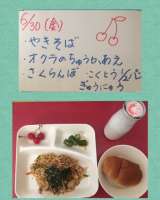 6/30(金)
・やきそば
・オクラのちゅうかあえ
・さくらんぼ ・こくとうパン
ぎゅうにゅう